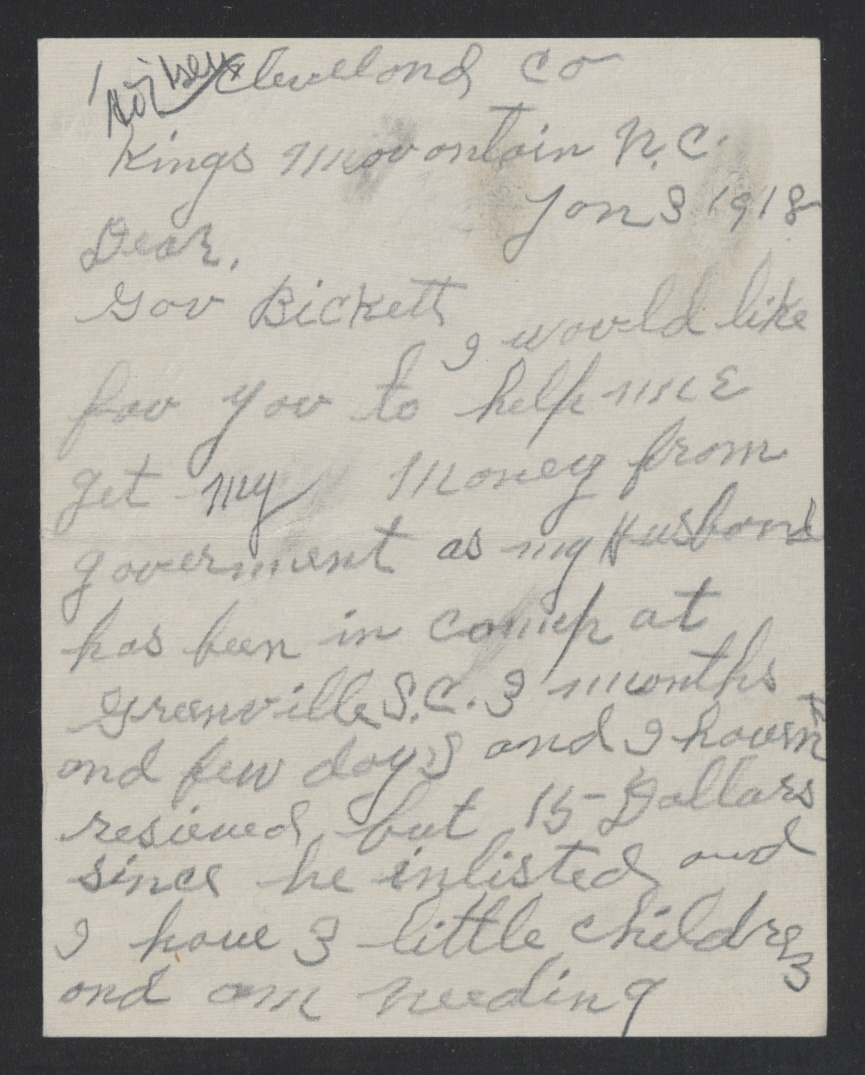 Cleveland Co
Kings Movontain N.C.
Jan 3 1918
Dear,
Gov Bickett
I would like
for you to help me
get my money from
goverment as my Husband
has been in camp at
Greenville S.C. 3 months
and few days and I haven't
resieved but 15 Dollars
since he inlisted and
I have 3 little children
and am needing